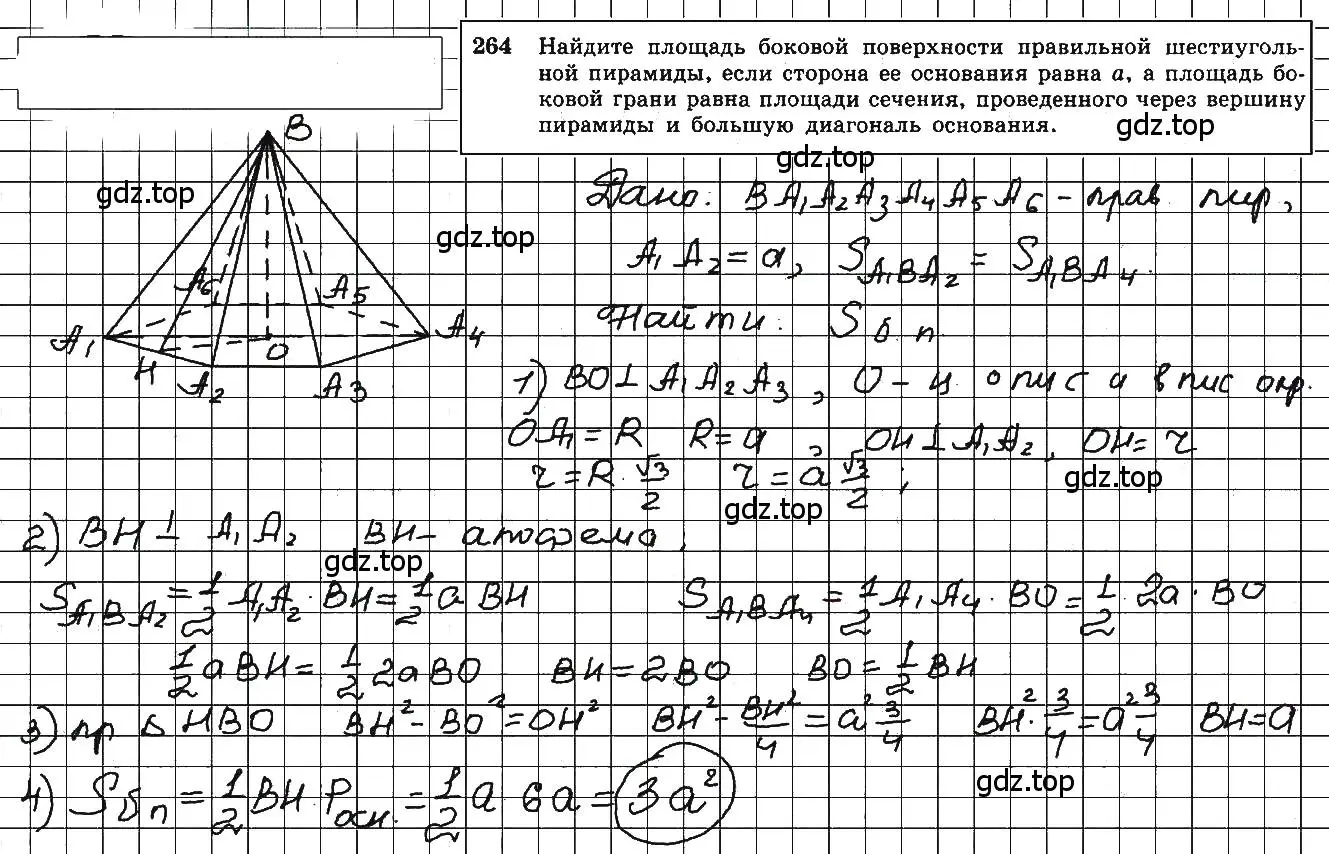 264 Найдите площадь боковой поверхности правильной шестиуголь-
ной пирамиды, если сторона ее основания равна a, а площадь бо-
ковой грани равна площади сечения, проведенного через вершину
пирамиды и большую диагональ основания.
gdz.top
gdz.top
B
gdz.top
Дано: BA₁A₂A₃A₄A₅A₆ - прав пир,
gdz.top
A₁A₂ = a, S_A₁BA₂ = S_A₁BA₄.
A₆ A₅
Найти: S б п.
A₁ O A₄
H A₂ A₃
1) BO ⊥ A₁A₂A₃, O - ц. опис и впис окр.
OA₁ = R R = a, OH ⊥ A₁A₂, OH = r
r = R · √3/2 r = a √3/2;
gdz.top
gdz.top
2) BH ⊥ A₁A₂ BH - апофема,
gdz.top
S_A₁BA₂ = 1/2 A₁A₂ · BH = 1/2 a BH S_A₁BA₄ = 1/2 A₁A₄ · BO = 1/2 2a · BO
1/2 a BH = 1/2 2a BO BH = 2BO BO = 1/2 BH
3) пр Δ HBO BH² - BO² = OH² BH² - BH²/4 = a² 3/4 BH² · 3/4 = a² 3/4 BH = a
gdz.top
4) S б п = 1/2 BH P осн. = 1/2 a 6a = 3a²